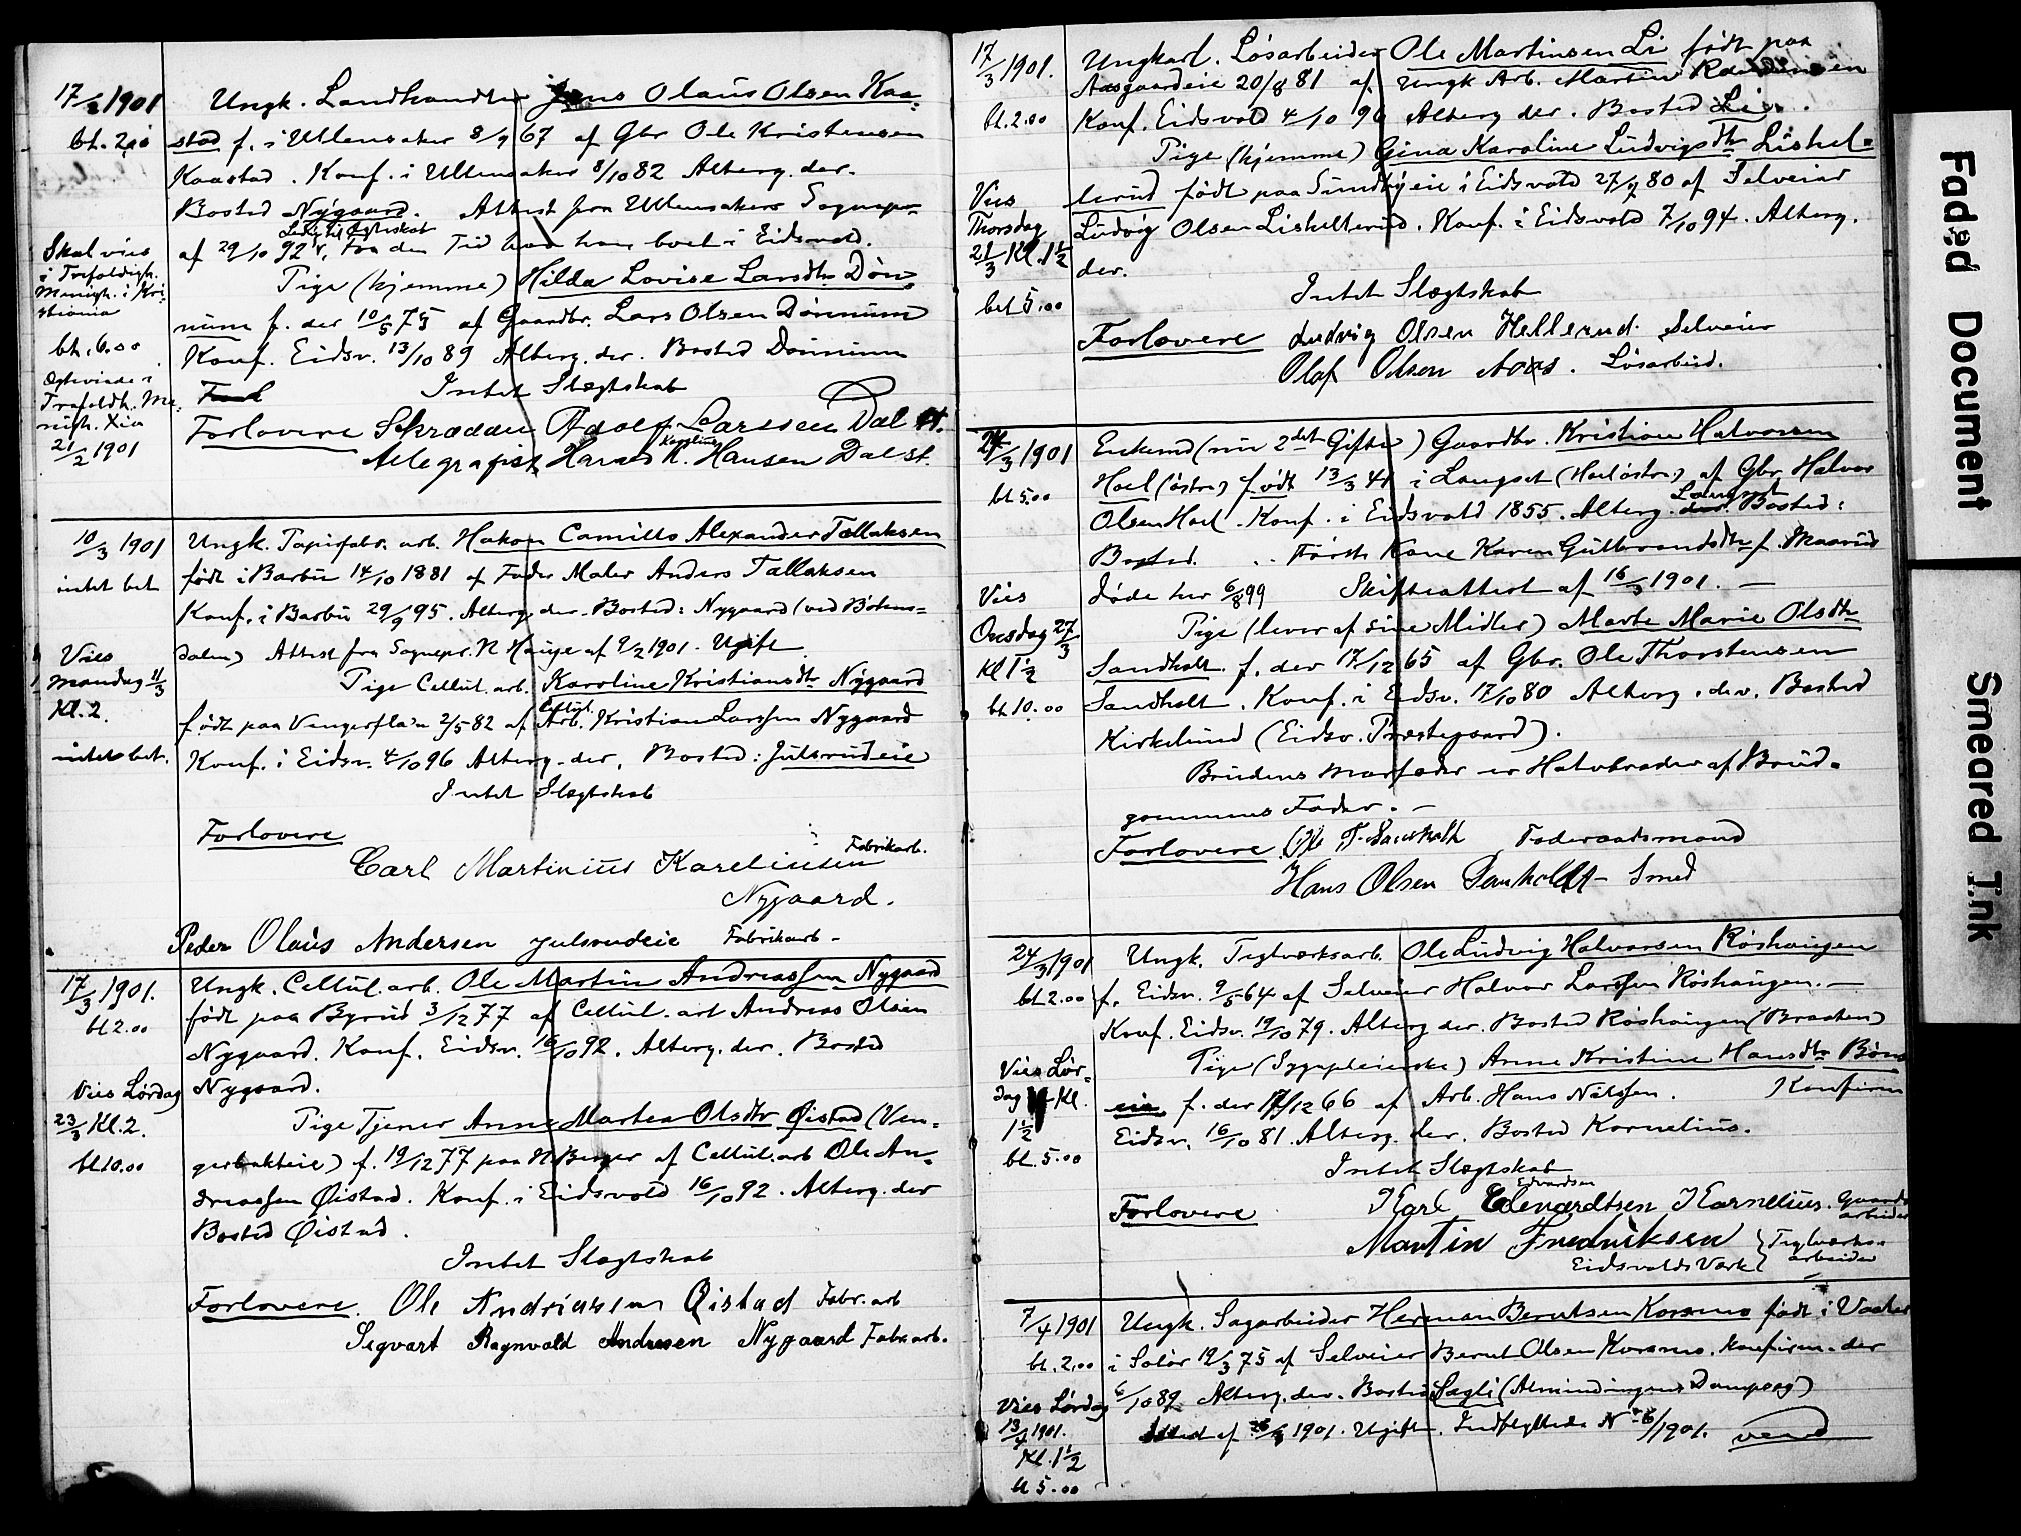 17/2 1901
bt. 2.00
Skal vies
i Trefoldigh.
Menigh. i Kri-
stiania
bt. 6.00
Ægteviede i
Trefoldh. Me-
nigh. Kra
21/2 1901
Ungk. Landhandler Jens Olaus Olsen Kaa-
stad f. i Ullensaker 8/9 67 af Gbr Ole Kristensen
Kaastad. Konf. i Ullensaker 8/10 82 Alterg. der.
Bosted Nygaard. Attest fra Ullensakers Sognepr.
Ledig til Ægteskab
af 29/10 92. Fra den Tid har han boet i Eidsvold.
Pige (hjemme) Hilda Lovise Larsdtr Døn-
num f. der 10/5 75 af Gaardbr. Lars Olsen Dønnum
Konf. Eidsv. 13/10 89 Alterg. der. Bosted Dønnum
Forl
Intet Slægtskab
Forlovere Skrædder Adolf Larssen Dal st.
Karelius
Telegrafist Harald K. Hansen Dal st.
10/3 1901
intet bet
Vies
Mandag 11/3
Kl. 2.
intet bet.
Ungk. Papirfabr. arb. Hakon Camillo Alexander Tallaksen
født i Barbu 14/10 1881 af Fader Maler Anders Tallaksen
Konf. i Barbu 29/9 95. Alterg. der. Bosted: Nygaard (ved Bøhns-
dalen) Attest fra Sognepr. N Hauge af 9/2 1901. Ugift.
Pige Cellul. arb. Karoline Kristiansdtr Nygaard
Cellul.
født paa Vengerflaen 2/5 82 af Arb. Kristian Larssen Nygaard
Konf. i Eidsv. 4/10 96 Alterg. der. Bosted: Julsrudeie
Intet Slægtskab
Forlovere
Carl Martinius Kareliusen Fabrikarb.
Nygaard.
Peder Olaus Andersen Julsrudeie Fabrikarb.
17/3 1901.
bt 2.00
Vies Lørdag
23/3 Kl. 2.
bt 10.00
Ungk. Cellul. arb. Ole Martin Andreassen Nygaard
født paa Byrud 3/12 77 af Cellul. arb Andreas Olsen
Nygaard. Konf. Eidsv. 16/10 92. Alterg. der. Bosted
Nygaard.
Pige Tjener Anne Martea Olsdtr Øistad (Ven-
gerbakkeie) f. 19/12 77 paa N. Berger af Cellul. arb Ole An-
dreassen Øistad. Konf. i Eidsvold 16/10 92. Alterg. der
Bosted Øistad.
Intet Slægtskab
Forlovere. Ole Andriassen Øistad Fabr. arb
Segvart Ragnvald Andresen Nygaard Fabr arb.
17/3 1901.
bt. 2.00
Vies
Thorsdag
21/3 Kl. 1 1/2
bet 5.00
Ungkarl. Løsarbeider Ole Martinsen Li født paa
Aasgaardeie 20/8 81 af Ungk Arb. Martin
Konf. Eidsvold 4/10 96 Alterg der. Bosted Lier.
Pige (hjemme) Gina Karoline Ludvigsdtr Liskel-
lerud født paa Sundbyeie i Eidsvold 27/9 80 af Selveier
Ludvig Olsen Liskellerud. Konf. i Eidsvold 7/10 94. Alterg.
der.
Intet Slægtskab
Forlovere Ludvig Olsen Hellerud. Selveier
Olaf Olsen Aaas. Løsarbeid.
24/3 1901
bt 5.00
Vies
Onsdag 27/3
Kl 1 1/2
bt 10.00
Enkemd (nu 2det Gifte) Gaardbr. Kristian Halvorsen
Hoel (østre) født 13/3 41 i Langset (Hoel østre) af Gbr. Halvor
Langset
Olsen Hoel. Konf. i Eidsvold 1855. Alterg. der. Bosted:
Bosted. Første Kone Karen Gulbrandsdtr f. Maarud
døde her 6/8 99 Skifteattest af 16/3 1901. —
Pige (lever af sine Midler) Marte Marie Olsdtr
Sandholt f. der 17/12 65 af Gbr. Ole Thorstensen
Sandholt. Konf. i Eidsv. 17/10 80 Alterg. der. Bosted
Kirkelund (Eidsv. Præstegaard).
Brudens Morfader er Halvbroder af Brud-
gommens Fader. —
Forlovere. Ole T. Sandholt Føderaadsmand
Hans Olsen Sanholdt - Smed
24/3 1901
bt 2.00
Vies Lør-
dag Kl.
1 1/2
bt. 5.00
Ungk. Teglværksarb. Ole Ludvig Halvorsen Røshaugen
f. Eidsv. 9/5 64 af Selveier Halvor Larssen Røshaugen. —
Konf. Eidsv. 19/10 79. Alterg der. Bosted Røshaugen (Braaten)
Pige (Sygepleierske) Anne Kristine Hansdtr Bøns
eie f. der 17/12 66 af Arb. Hans Nilssen. Konfirm
Eidsv. 16/10 81. Alterg. der. Bosted Kornelius.
Intet Slægtskab
Edvardsen
Forlovere Karl Edevardtsen Karnelius. Gaards
arbeider
Martin Fredriksen } Teglværks-
Eidsvolds Værk } arbeider
7/4 1901
bt. 2.00
Vies Lørdag
13/4 1901.
Kl. 1 1/2
bt 5.00
Ungk. Sagarbeider Herman Berntsen Korsmo født i Vaaler
i Solør 19/3 75 af Selveier Bernt Olsen Korsmo. Konfirm. der
6/10 89 Alterg. der. Bosted Sagli (Almindingens Dampsag)
Attest af 26/3 1901. Ugift. Indflyttede № 6/1901. vend
Faded Document
Smeared Ink